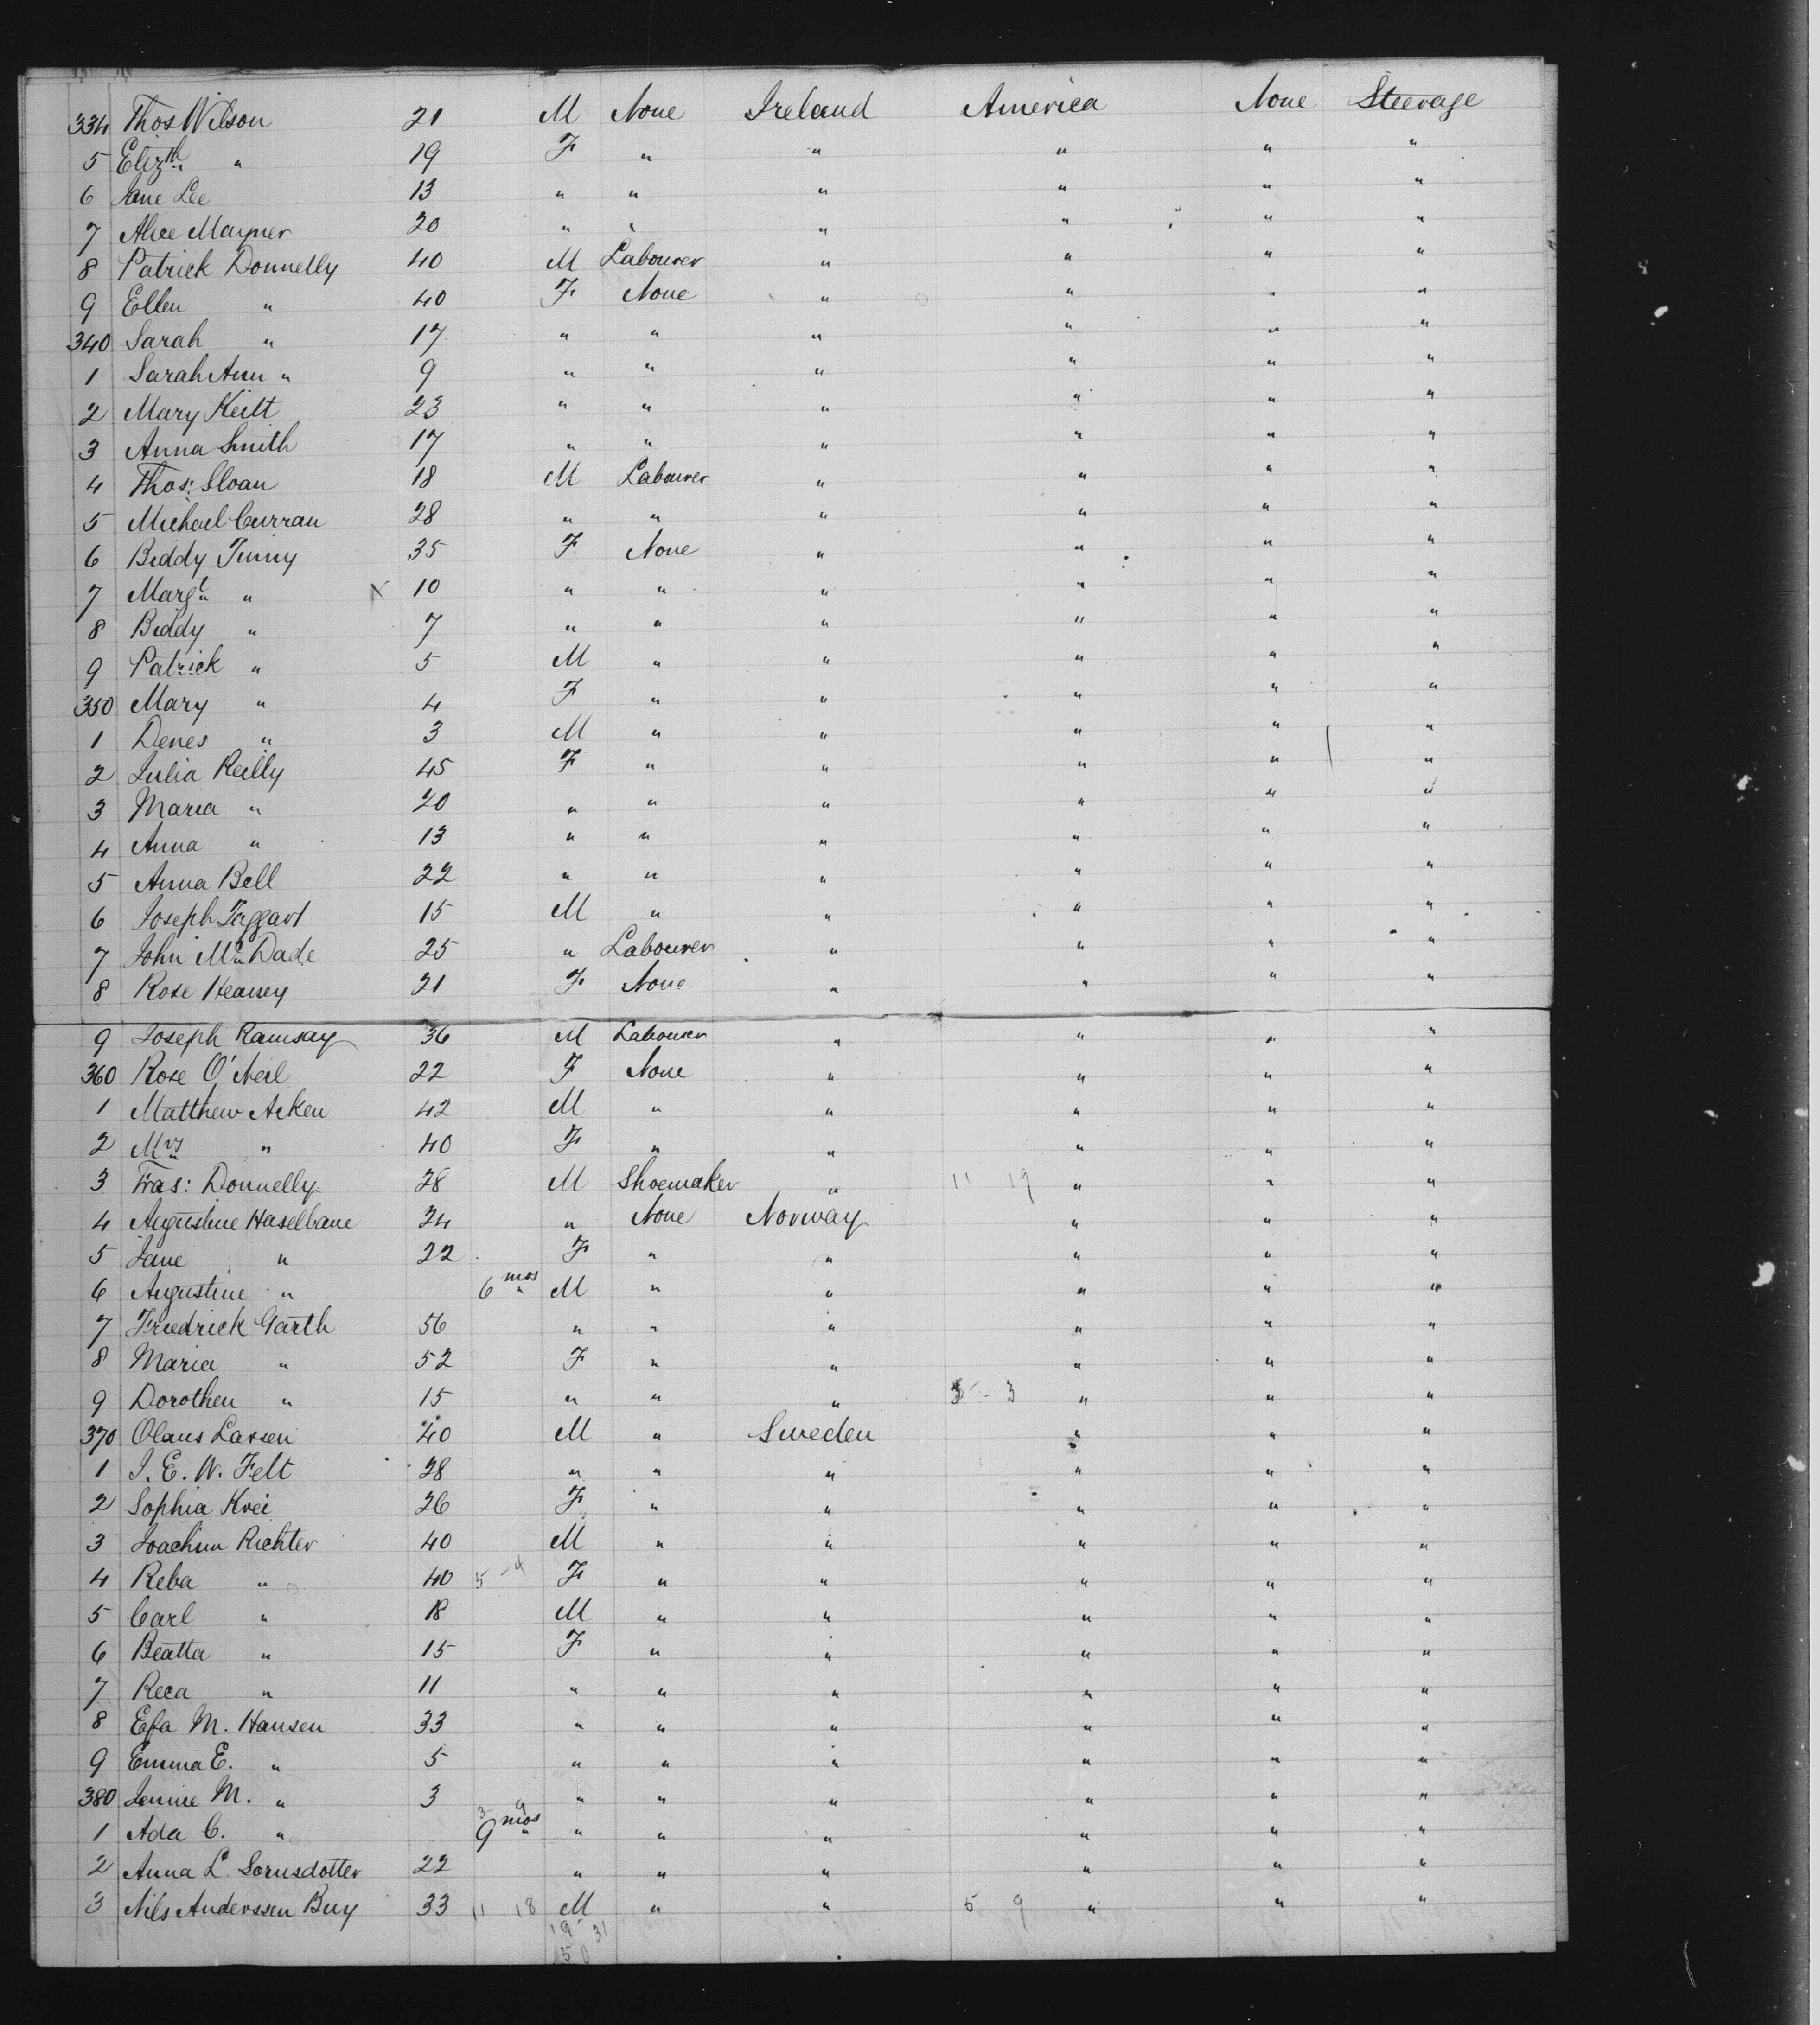 334 Thos Wilson 21 M None Ireland America None Steerage
5 Elizth " 19 F " " " " "
6 Jane Lee 13 " " " " " "
7 Alice 20 " " " " " "
8 Patrick Donnelly 40 M Labourer " " " "
9 Ellen " 40 F None " " " "
340 Sarah " 17 " " " " " "
1 Sarah Ann " 9 " " " " " "
2 Mary Keilt 23 " " " " " "
3 Anna Smith 17 " " " " " "
4 Thos: Sloan 18 M Labourer " " " "
5 Michael Curran 28 " " " " " "
6 Biddy 35 F None " " " "
7 Margt " X 10 " " " " " "
8 Biddy " 7 " " " " " "
9 Patrick " 5 M " " " " "
350 Mary " 4 F " " " " "
1 Denes " 3 M " " " " "
2 Julia Reilly 45 F " " " " "
3 Maria " 20 " " " " " "
4 Anna " 13 " " " " " "
5 Anna Bell 22 " " " " " "
6 Joseph Taggart 15 M " " " " "
7 John Mc Dade 25 " Labourer " " " "
8 Rose Heaney 21 F None " " " "
9 Joseph Ramsay 36 M Labourer " " " "
360 Rose O'Neil 22 F None " " " "
1 Matthew Aiken 42 M " " " " "
2 Mrs " 40 F " " " " "
3 Fras: Donnelly 28 M Shoemaker " 11 19 " " "
4 Augustine Haselbane 24 " None Norway " " "
5 Jane " 22 F " " " " "
6 Augustine " 6 mos M " " " " "
7 Friedrick Garth 56 " " " " " "
8 Maria " 52 F " " " " "
9 Dorothen " 15 " " " 3 " " "
370 Olaus Larsen 40 M " Sweden " " "
1 J. E. W. Felt 28 " " " " " "
2 Sophia Krei 26 F " " " " "
3 Joachim Richter 40 M " " " " "
4 Reba " 40 5 - 4 F " " " " "
5 Carl " 18 M " " " " "
6 Beatta " 15 F " " " " "
7 Reca " 11 " " " " " "
8 Efa M. Hansen 33 " " " " " "
9 Emma E. " 5 " " " " " "
380 Jennie M. " 3 " " " " " "
1 Ada C. " 9 mos " " " " " "
2 Anna L. Sornsdotter 22 " " " " " "
3 Nils Anderssen Buy 33 11 18 M " " 5 9 " " "